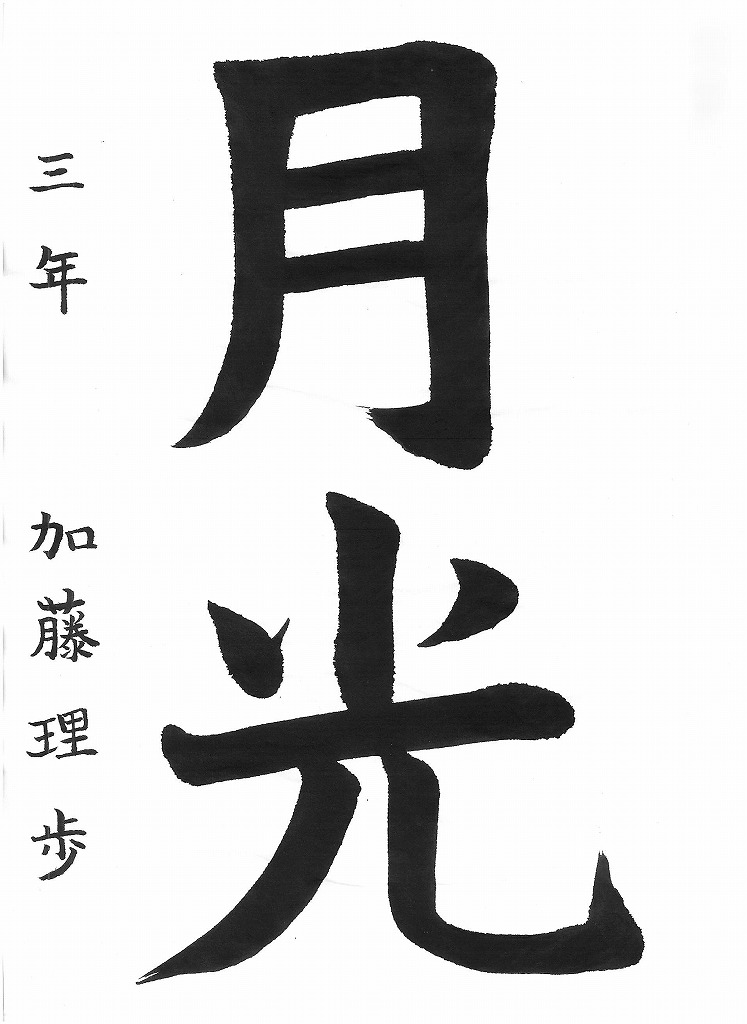 月光
三年 加藤理歩